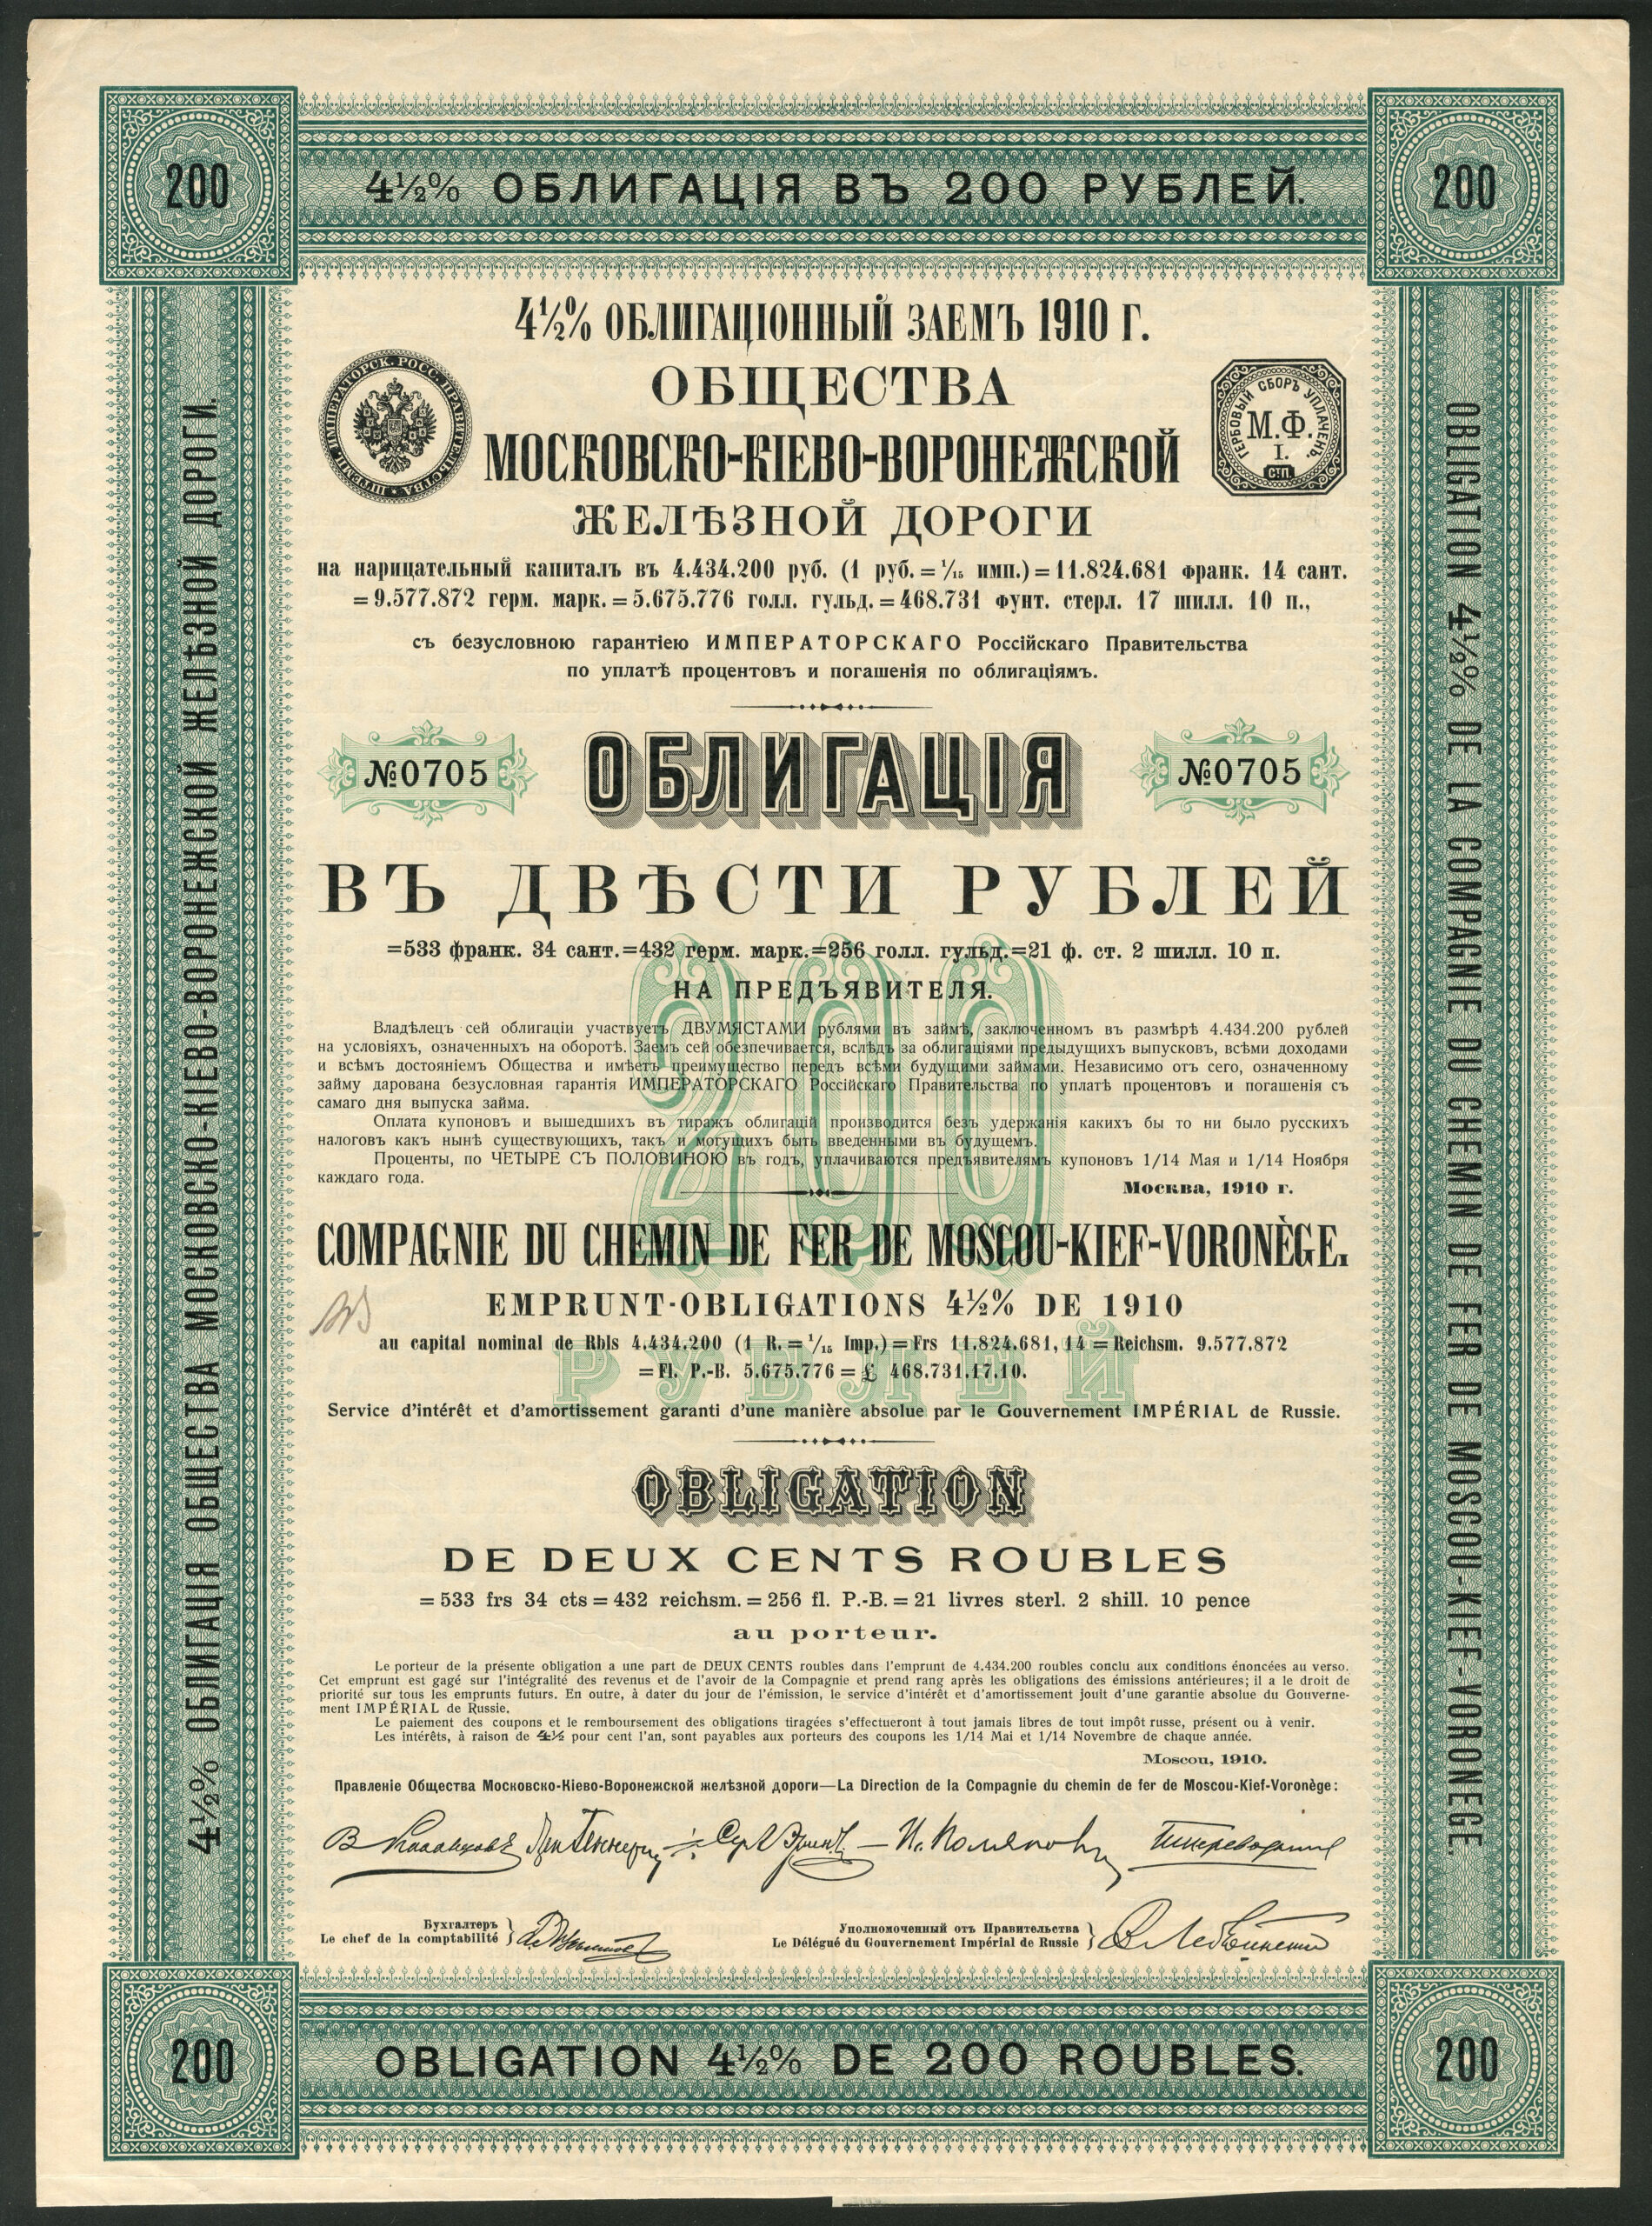 200
4½% ОБЛИГАЦІЯ ВЪ 200 РУБЛЕЙ.
200
4½% ОБЛИГАЦІЯ ОБЩЕСТВА МОСКОВСКО-КІЕВО-ВОРОНЕЖСКОЙ ЖЕЛѢЗНОЙ ДОРОГИ.
OBLIGATION 4½% DE LA COMPAGNIE DU CHEMIN DE FER DE MOSCOU-KIEF-VORONEGE.
4½% ОБЛИГАЦІОННЫЙ ЗАЕМЪ 1910 Г.
ОБЩЕСТВА
МОСКОВСКО-КІЕВО-ВОРОНЕЖСКОЙ
ЖЕЛѢЗНОЙ ДОРОГИ
ШТЕМП. ИМПЕРАТОРСК. РОСС. ПРАВИТЕЛЬСТВА
ГЕРБОВЫЙ СБОРЪ УПЛАЧЕНЪ.
М.Ф.
I.
на нарицательный капиталъ въ 4.434.200 руб. (1 руб. = 1/15 имп.) = 11.824.681 франк. 14 сант.
= 9.577.872 герм. марк. = 5.675.776 голл. гульд. = 468.731 фунт. стерл. 17 шилл. 10 п.,
съ безусловною гарантіею ИМПЕРАТОРСКАГО Россійскаго Правительства
по уплатѣ процентовъ и погашенія по облигаціямъ.
№0705
ОБЛИГАЦІЯ
№0705
ВЪ ДВѢСТИ РУБЛЕЙ
=533 франк. 34 сант.=432 герм. марк.=256 голл. гульд.=21 ф. ст. 2 шилл. 10 п.
НА ПРЕДЪЯВИТЕЛЯ.
200
Владѣлецъ сей облигаціи участвуетъ ДВУМЯСТАМИ рублями въ займѣ, заключенномъ въ размѣрѣ 4.434.200 рублей
на условіяхъ, означенныхъ на оборотѣ. Заемъ сей обезпечивается, вслѣдъ за облигаціями предыдущихъ выпусковъ, всѣми доходами
и всѣмъ достояніемъ Общества и имѣетъ преимущество передъ всѣми будущими займами. Независимо отъ сего, означенному
займу дарована безусловная гарантія ИМПЕРАТОРСКАГО Россійскаго Правительства по уплатѣ процентовъ и погашенія съ
самаго дня выпуска займа.
Оплата купоновъ и вышедшихъ въ тиражъ облигацій производится безъ удержанія какихъ бы то ни было русскихъ
налоговъ какъ нынѣ существующихъ, такъ и могущихъ быть введенными въ будущемъ.
Проценты, по ЧЕТЫРЕ СЪ ПОЛОВИНОЮ въ годъ, уплачиваются предъявителямъ купоновъ 1/14 Мая и 1/14 Ноября
каждаго года.
Москва, 1910 г.
COMPAGNIE DU CHEMIN DE FER DE MOSCOU-KIEF-VORONÈGE.
EMPRUNT-OBLIGATIONS 4½% DE 1910
au capital nominal de Rbls 4.434.200 (1 R. = 1/15 Imp.) = Frs 11.824.681,14 = Reichsm. 9.577.872
= Fl. P.-B. 5.675.776 = £ 468.731.17.10.
РУБЛЕЙ
Service d'intérêt et d'amortissement garanti d'une manière absolue par le Gouvernement IMPÉRIAL de Russie.
OBLIGATION
DE DEUX CENTS ROUBLES
= 533 frs 34 cts = 432 reichsm. = 256 fl. P.-B. = 21 livres sterl. 2 shill. 10 pence
au porteur.
Le porteur de la présente obligation a une part de DEUX CENTS roubles dans l'emprunt de 4.434.200 roubles conclu aux conditions énoncées au verso.
Cet emprunt est gagé sur l'intégralité des revenus et de l'avoir de la Compagnie et prend rang après les obligations des émissions antérieures; il a le droit de
priorité sur tous les emprunts futurs. En outre, à dater du jour de l'émission, le service d'intérêt et d'amortissement jouit d'une garantie absolue du Gouverne-
ment IMPÉRIAL de Russie.
Le paiement des coupons et le remboursement des obligations tiragées s'effectueront à tout jamais libres de tout impôt russe, présent ou à venir.
Les intérêts, à raison de 4½ pour cent l'an, sont payables aux porteurs des coupons les 1/14 Mai et 1/14 Novembre de chaque année.
Moscou, 1910.
Правленіе Общества Московско-Кіево-Воронежской желѣзной дороги—La Direction de la Compagnie du chemin de fer de Moscou-Kief-Voronège:
Бухгалтеръ
Le chef de la comptabilité
Уполномоченный отъ Правительства
Le Délégué du Gouvernement Impérial de Russie
200
OBLIGATION 4½% DE 200 ROUBLES.
200